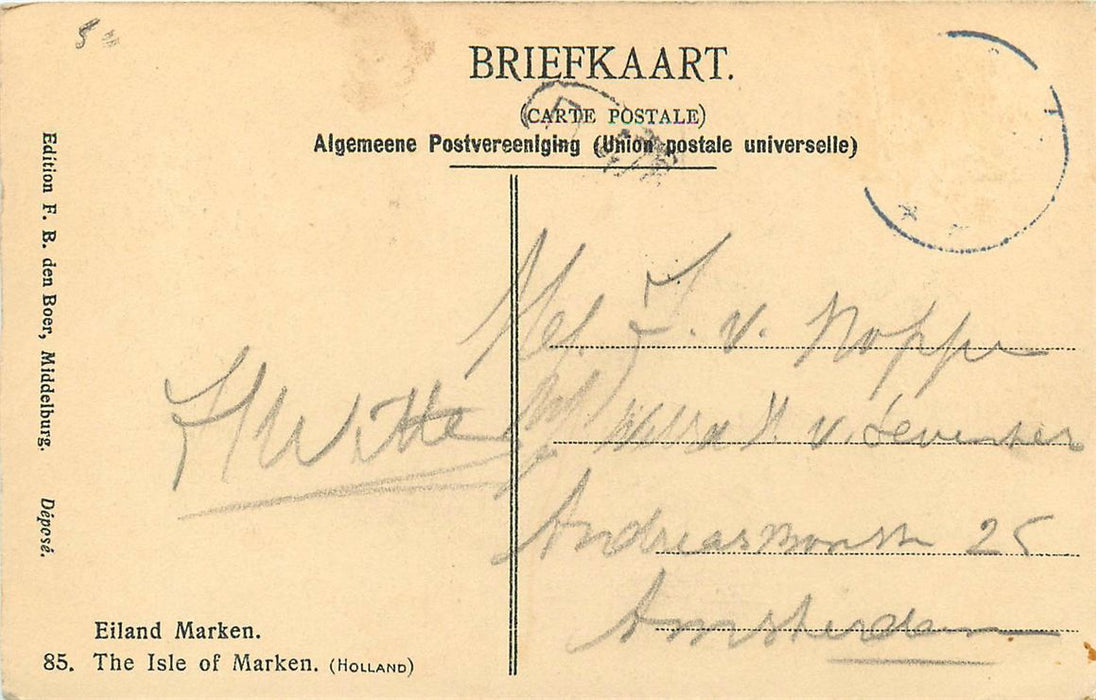 BRIEFKAART.
(CARTE POSTALE)
Algemeene Postvereeniging (Union postale universelle)
Edition F. B. den Boer, Middelburg. Déposé.
Mej. J. v. Noppe
v.
HWitte
25
Amsterdam
Eiland Marken.
85. The Isle of Marken. (HOLLAND)